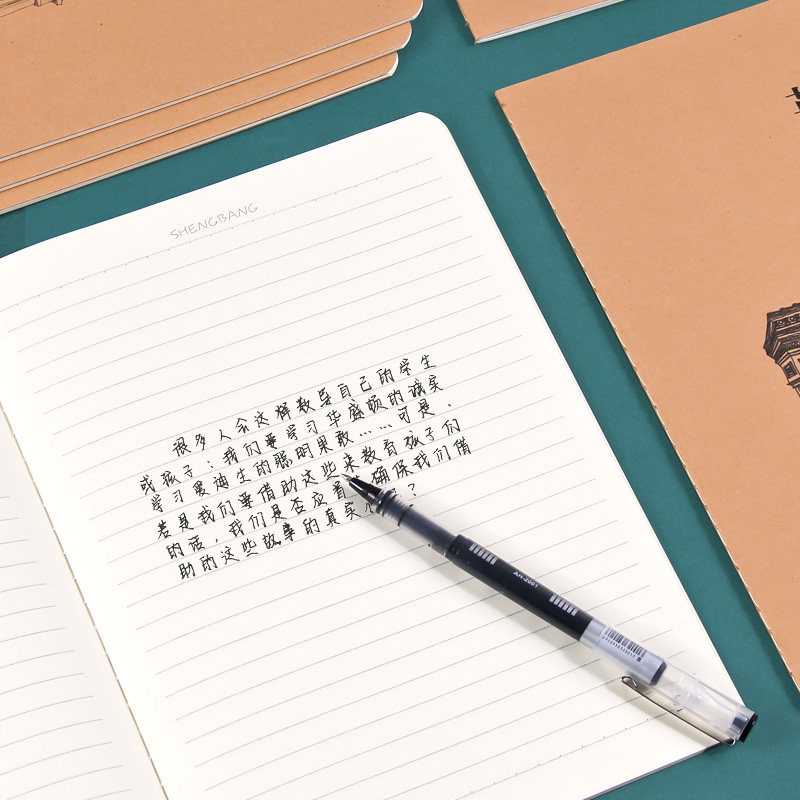 SHENGBANG
很多人会这样教导自己的学生
或孩子：我们要学习华盛顿的诚实、
学习爱迪生的聪明果敢……可是，
若是我们要借助这些来教育孩子们
的话，我们是否应首 确保我们借
助的这些故事的真实 ？
AH-2001